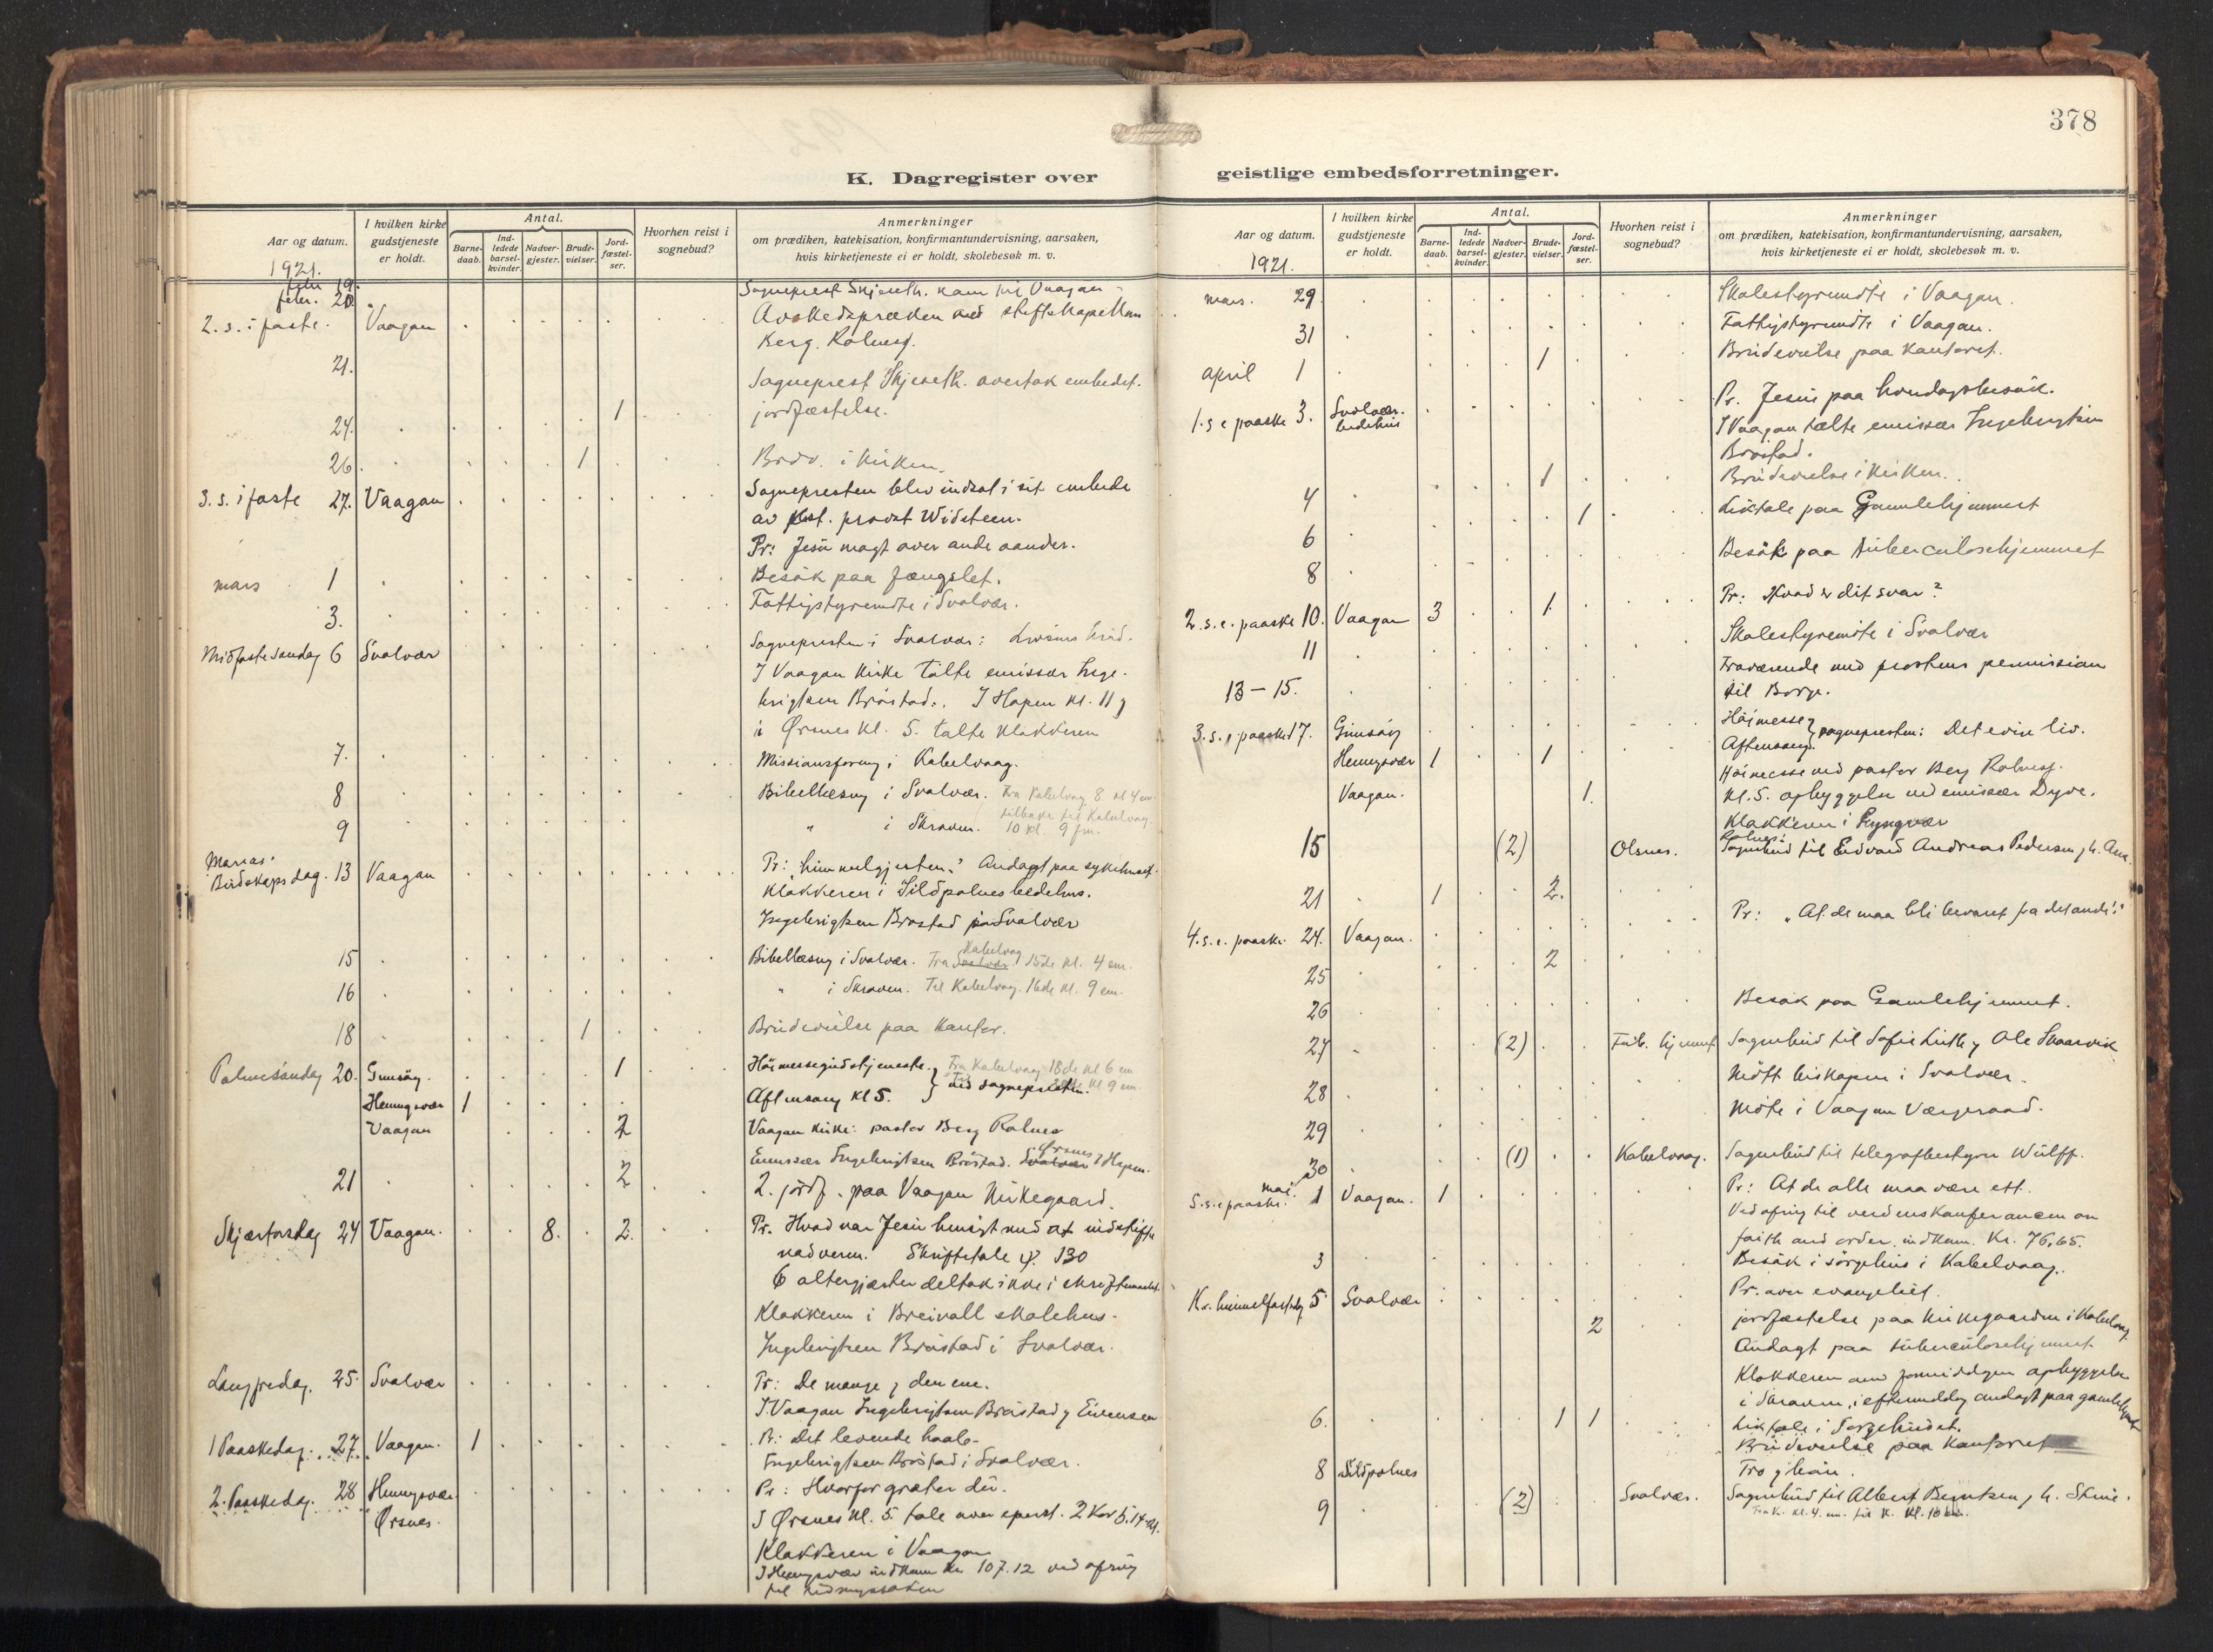 378
K. Dagregister over
Aar og datum.
I hvilken kirke gudstjeneste er holdt.
Antal.
Barne-daab.
Ind-ledede barsel-kvinder.
Nadver-gjester.
Brude-vielser.
Jord-fæstel-ser.
Hvorhen reist i sognebud?
Anmerkninger
om prædiken, katekisation, konfirmantundervisning, aarsaken,
hvis kirketjeneste ei er holdt, skolebesøk m. v.
1921.
febr 19. Sogneprest kom til Vaagan
febr. 20.
2. s. i faste. Vaagan Avskedspræken ved stiftskapellan
Berg. Rolness.
21. Sogneprest overtok embedet.
24. 1 jordfæstelse.
26. 1 Brdv. i kirken.
3. s. i faste 27. Vaagan Sognepresten blev indsat i sit embede
av provst Widsteen.
Pr: Jesu magt over onde aander.
mars 1 Besök paa fængslet.
3. Fattigstyremöte i Svolvær.
Midfastesöndag 6 Svolvær Sognepresten i Svolvær: Livsens bröd.
I Vaagan kirke talte emissær Inge-
brigtsen Bröstad. I Hopen kl. 11 og
i Ørsnes kl. 5. talte klokkeren
7. Missionsforeng i Kabelvaag.
8 Bibellæsng i Svolvær. Fra Kabelvag 8. kl 4 em.
tilbake til Kabelvag.
9 " i Skroven. 10 kl. 9 fm.
Marias
Budskapsdag. 13 Vaagan Pr: himmelgjesten. Andagt paa sykehuset.
Klokkeren i Sildpolnes bedehus.
Ingebrigtsen Bröstad i Svolvær
15 Bibellæsng i Svolvær. Fra Svolvær Kabelvag 15de kl. 4 em.
16 " i Skroven. Til Kabelvag. 16de kl. 9 em.
18 1 Brudevielse paa kontor.
Palmesöndag 20. Gimsöy. 1 Höimessegudstjeneste. Fra Kabelvag 18de kl 6 em
Henngsvær 1 Aftensang kl 5. ved sognepresten. kl 9 em.
Vaagan 2 Vaagan kirke: pastor Berg Rolnes
Emissær Ingebrigtsen Bröstad. Svolvær Ørsnes & Hopen.
21 2 2. jordf. paa Vaagan kirkegaard.
Skjærtorsdag 24 Vaagan. 8. 2. Pr. Hvad var Jesu hensigt med at indstifte
nadveren. Skriftetale ψ. 130
6 altergjæster deltok ikke i skriftemaalet.
Klokkeren i Breivoll skolehus.
Ingebrigtsen Bröstad i Svolvær.
Langfredag. 25. Svolvær Pr: De mange og den ene.
I Vaagan Ingebrigtsen Bröstad og Eivensen
1 Paaskedag. 27. Vaagan. 1 Pr: Det levende haab.
Ingebrigtsen Bröstad i Svolvær.
2. Paaskedag. 28 Henngsvær Pr: Hvorfor græter du.
Ørsnes. I Ørsnes kl. 5. tale over epist. 2 Kor 5.14-21.
Klokkeren i Vaagan
I Henngsvær indkom kr. 107.12 ved ofring
til
geistlige embedsforretninger.
Aar og datum.
I hvilken kirke gudstjeneste er holdt.
Antal.
Barne-daab.
Ind-ledede barsel-kvinder.
Nadver-gjester.
Brude-vielser.
Jord-fæstel-ser.
Hvorhen reist i sognebud?
Anmerkninger
om prædiken, katekisation, konfirmantundervisning, aarsaken,
hvis kirketjeneste ei er holdt, skolebesøk m. v.
1921.
mars. 29. Skolestyremöte i Vaagan.
31 Fattigstyremöte i Vaagan.
april 1 1 Brudevielse paa kontoret.
1. s e paaske 3. Svolvær. bedehus Pr. Jesus paa hverdagsbesök.
I Vaagan talte emissær Ingebrigtsen
Bröstad.
4 1 Brudevielse i kirken.
6 1 Liktale paa Gamlehjemmet
8 Besök paa tuberculosehjemmet
2. s. e. paaske 10. Vaagan 3 1 Pr: Hvad er dit svar?
11 Skolestyremöte i Svolvær
13-15. Fraværende med provstens permission
til Borge.
3. s. e paaske 17. Gimsöy Höimesse
Henngsvær 1 1 Aftensang. sognepresten: Det evige liv.
Höimesse ved pastor Berg Rolness.
Vaagan. 1. Kl. 5. opbyggelse ved emissær Dyve.
Klokkeren i
15 (2) Olsnes. Sognebud til Edvard Andreas Pedersen og h.
21 1 2.
4. s. e. paaske 24. Vaagan. Pr: „At de maa bli bevaret fra det onde."
25 2
26 Besök paa Gamlehjemmet.
27 (2) Tub. hjemmet Sognebud til Sofie og Ole Skaarvik
28 Mött biskopen i Svolvær.
29 Möte i Vaagan Værgeraad.
30 (1) Kabelvaag. Sognebud til telegrafbestyrer Wulff.
mai.
5. s. e paaske. 1 Vaagan. 1 Pr: At de alle maa være ett.
Ved ofring til verdenskonferancen on
faith and order. indkom. Kr. 76,65.
3 Besök i sörgehus i Kabelvaag.
Kr. himmelfartsdg 5 Svolvær Pr. over evangeliet.
2 jordfæstelse paa kirkegaarden i Kabelvag.
Andagt paa tuberculosehjemmet
Klokkeren om formiddagen opbyggelse
i Skroven, i eftermiddag andagt paa gamlehjemmet
6. 1 1 Liktale i Sorgehuset.
Brudevielse paa kontoret
8 Sildpolnes Tro og bön.
9 (2) Svolvær. Sognebud til Albert Berntsen og h.
Fra K. kl. 4. em. til K. kl. 10 em.